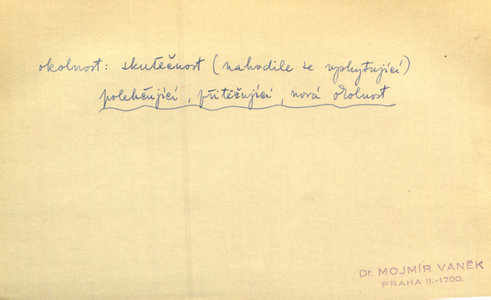 okolnost: skutečnost (nahodile se vyskytující)
polehčující, přitěžující, nová okolnost
Dr. MOJMÍR VANĚK
PRAHA II.-1700.